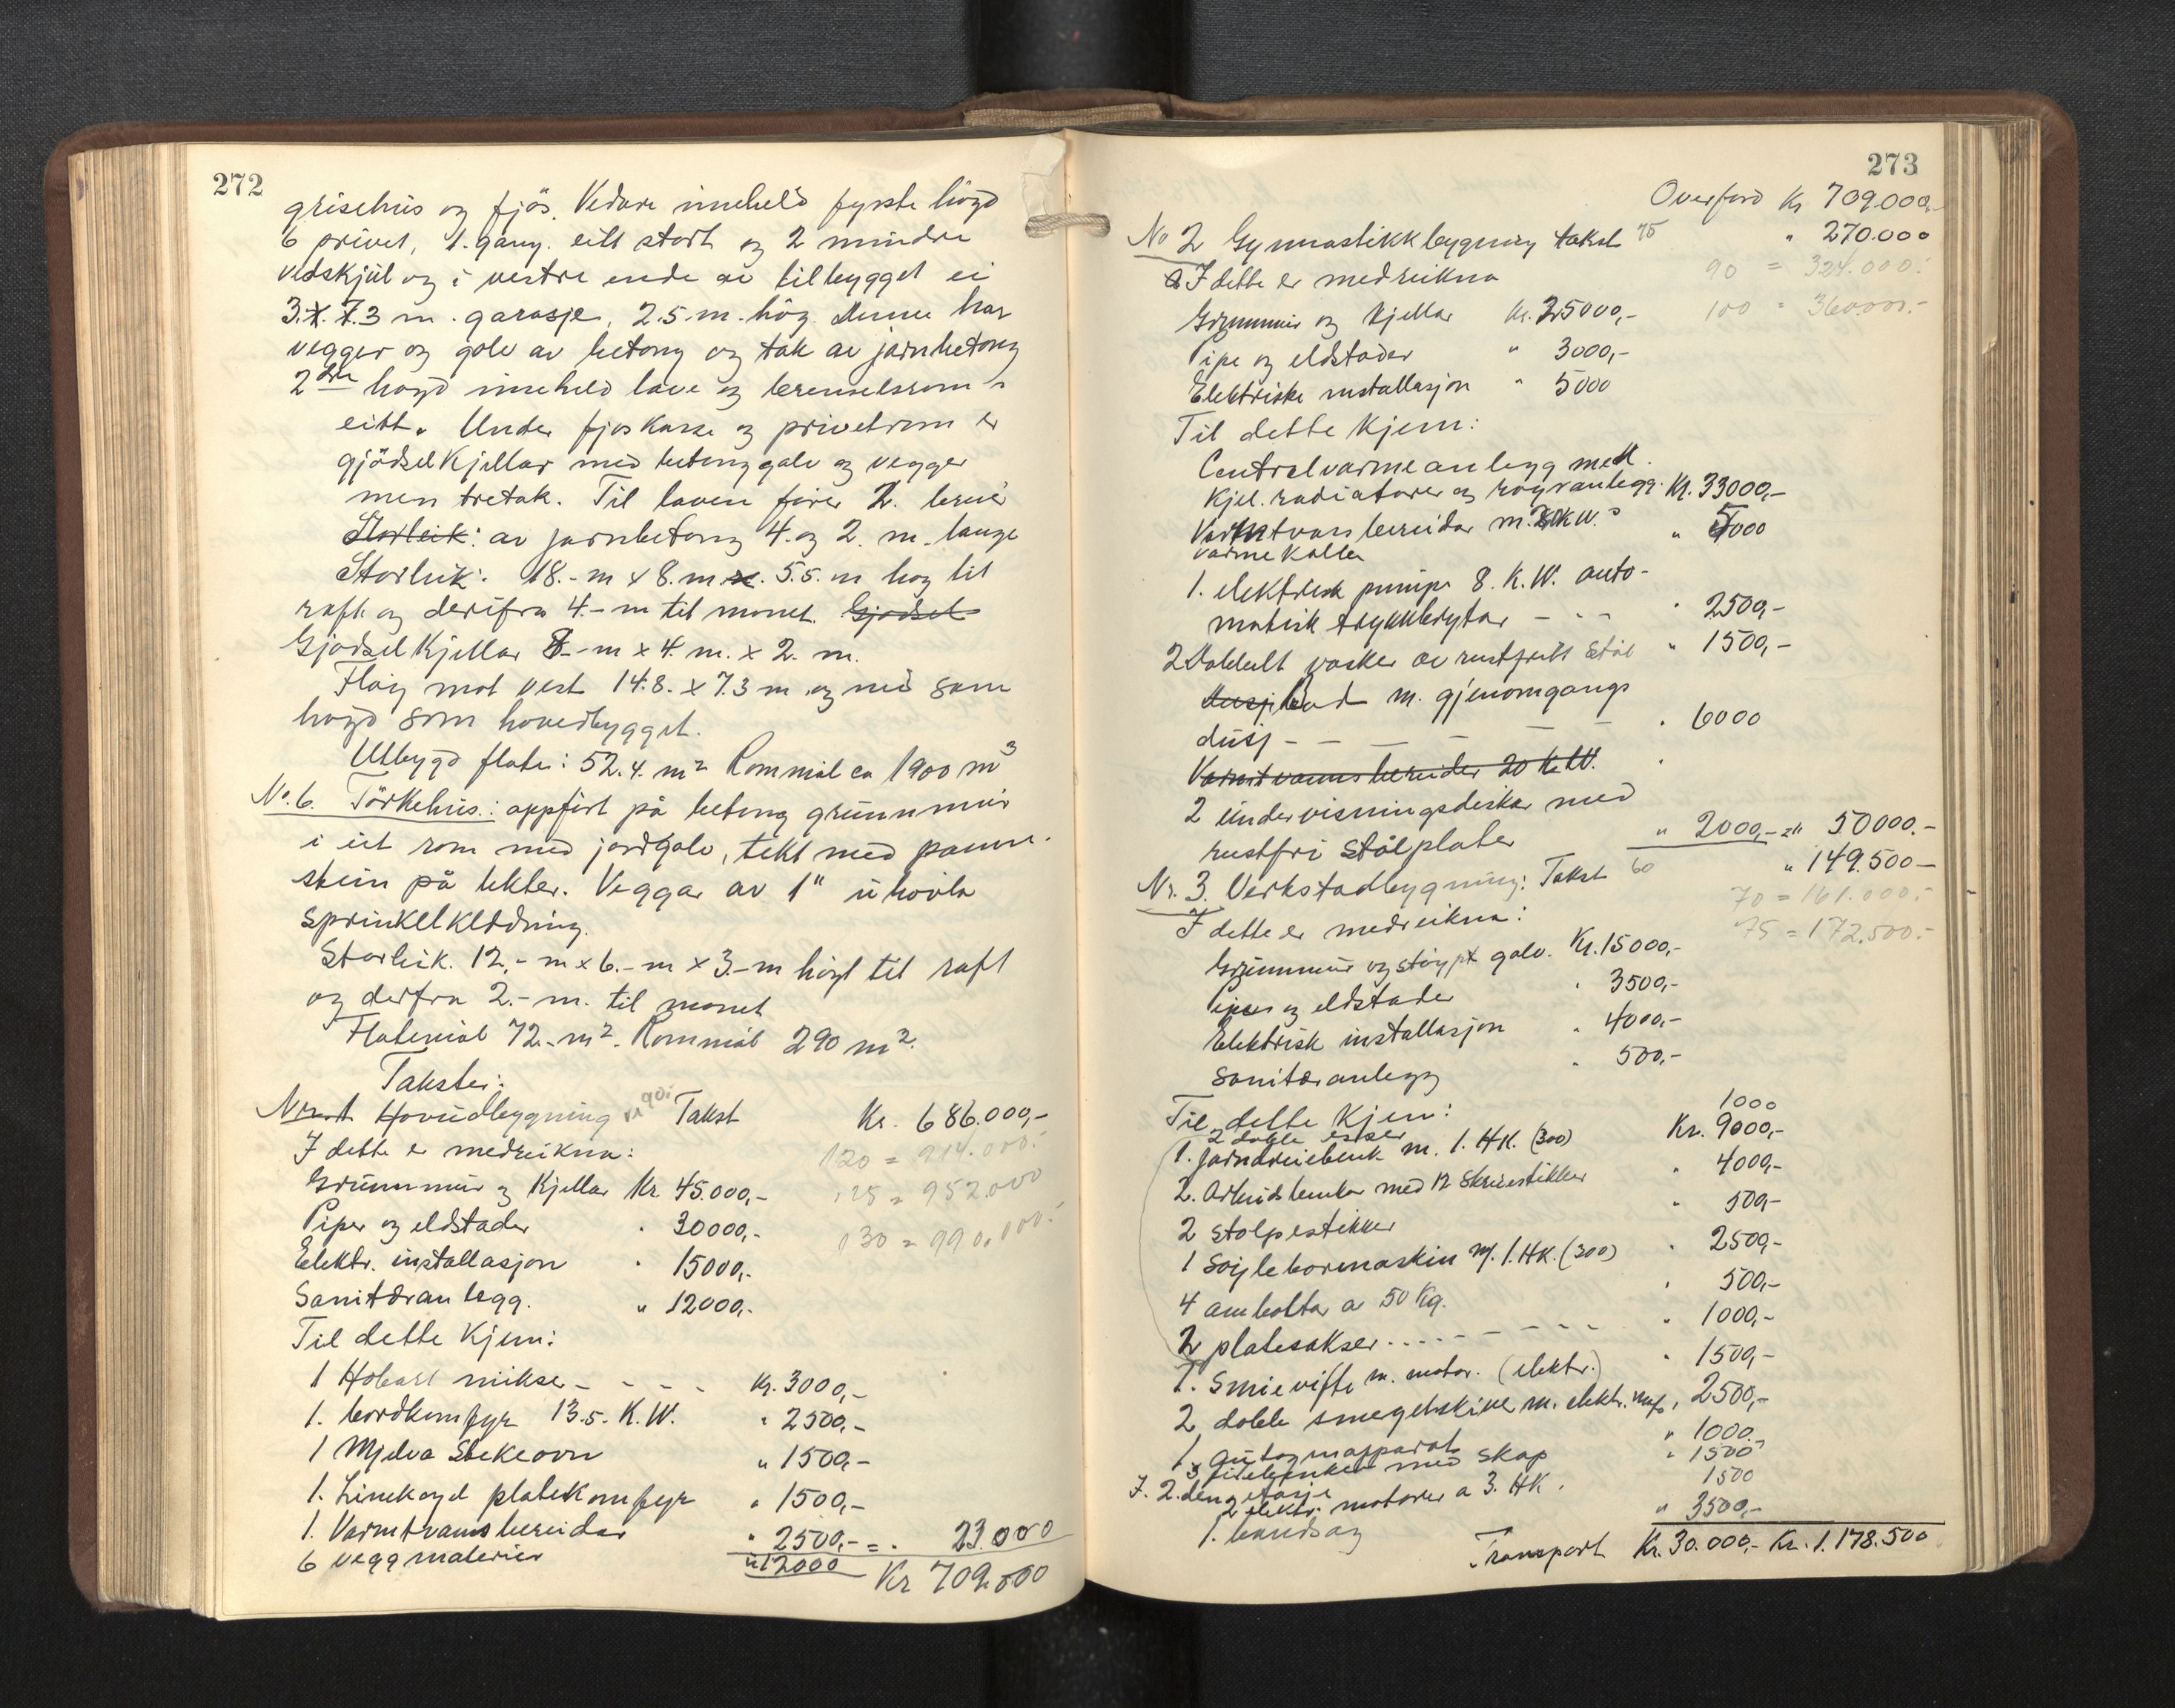 272
grisehus og fjøs. Vedare inneheld fyrste högd
6 privet, 1. gang. eitt stort og 2 mindre
vedskjul og i vestre ende av tilbygget ei
3. x. 7.3 m. garasje, 2.5. m. hög. Denne har
vegger og golv av betong og tak av jarnbetong
2dre høgd inneheld lave og brenselsrom i
eitt. Under fjøskasse og privetrom er
gjödselkjellar med betonggolv og vegger
men tretak. Til laven förer 2. bruer
Storleik: av jarnbetong 4. og 2. m. lange
Storleik: 18.- m x 8. m x. 5.5. m hög til
raft og derifra 4.- m til mønet. Gjødsel
Gjødselkjellar 8.- m x 4. m. x 2. m.
Fløy mot vest 14.8. x 7.3 m og med same
høgd som hovedbygget.
Utbygd flate: 52.4. m² Rommål ca 1900 m³
No. 6. Törkehus.: oppfört på betong grunnmur
i eit rom med jordgolv, tekt med panne-
stein på lekter. Veggar av 1" uhövla
sprinkelkledning.
Storleik. 12.- m x 6.- m x 3.- m högt til raft
og derfra 2.- m. til mønet
Flatemål 72.- m². Rommål 290 m².
Takster:
Nr. 1 Hovudbygning a 90.- Takst Kr. 686.000,-
I dette er medreikna: 120 = 914.000.-
Grunnmur og Kjellar Kr 45.000,- 125 = 952.000
Piper og eldstader " 30000,- 130 = 990.000.-
Elektr. installasjon " 15000,-
Sanitæranlegg. " 12000,-
Til dette Kjem:
1 Hobart mikser - - - - Kr. 3000,-
1. bordkomfyr 13.5. K.W. " 2500,-
1 Mjelva Stekeovn " 1500,-
1. platekomfyr " 1500,-
1. Varmtvansbereidar " 2500,- = " 23.000
6 vegg " 12000 Kr 709.000
273
Overførd Kr 709.000,-
No 2 Gymnastikkbygning takst 75 " 270.000
I dette er medreikna 90 = 324.000.-
Grunnmur og kjellar Kr. 25000,- 100 = 360000.-
Pipe og eldstader " 3000,-
Elektriske installasjon " 5000
Til dette Kjem:
Centralvarmeanlegg med
Kjel. radiatorer og røyranlegg. Kr. 33000,-
Varmtvansbereidar m. K.W.s " 5000
varmekolbe
1. elektrisk pumpe 8. K.W. auto-
matisk trykkbrytar - - - " 2500,-
2 Dobbelt vasker av rustfritt Stål " 1500,-
Dusjbad m. gjenomgangs
dusj - - - - - " 6000
Varmtvannsbereider 20 K.W. "
2 undervisningsdiskar med
rustfri stålplater " 2000,- = " 50000.-
Nr. 3. Verkstadbygning: Takst 60 " 149.500-
I dette er medreikna: 70 = 161.000.-
75 = 172.500.-
Grunnmur og støypt golv. Kr. 15000,-
Piper og eldstader " 3500,-
Elektrisk installasjon " 4000,-
sanitæranlegg " 500,-
Til dette Kjem:
2 doble esser 1000
1. Jarndreiebenk m. 1. HK. (300) Kr. 9000,-
2. Arbeidsbenker med 12 Skruestikker " 4000,-
2 stolpestikker " 500,-
1 Søyleboremaskin m/ 1. HK. (300) " 2500,-
4 ambolta a 50 Kg. " 500,-
2 platesakser - - - - - - " 1000,-
1. Smievifte m. motor. (elektr.) " 1500,-
2 doble smergelskiver m. elektr. " 2500,-
1. autogenapparat " 1000.-
3 filebenker med skap " 1500
I. 2. den etasje
2 elektr. motorer a 3. HK. 1500
1. bandsag " 3500,-
Transport Kr. 30.000,- Kr. 1.178.500